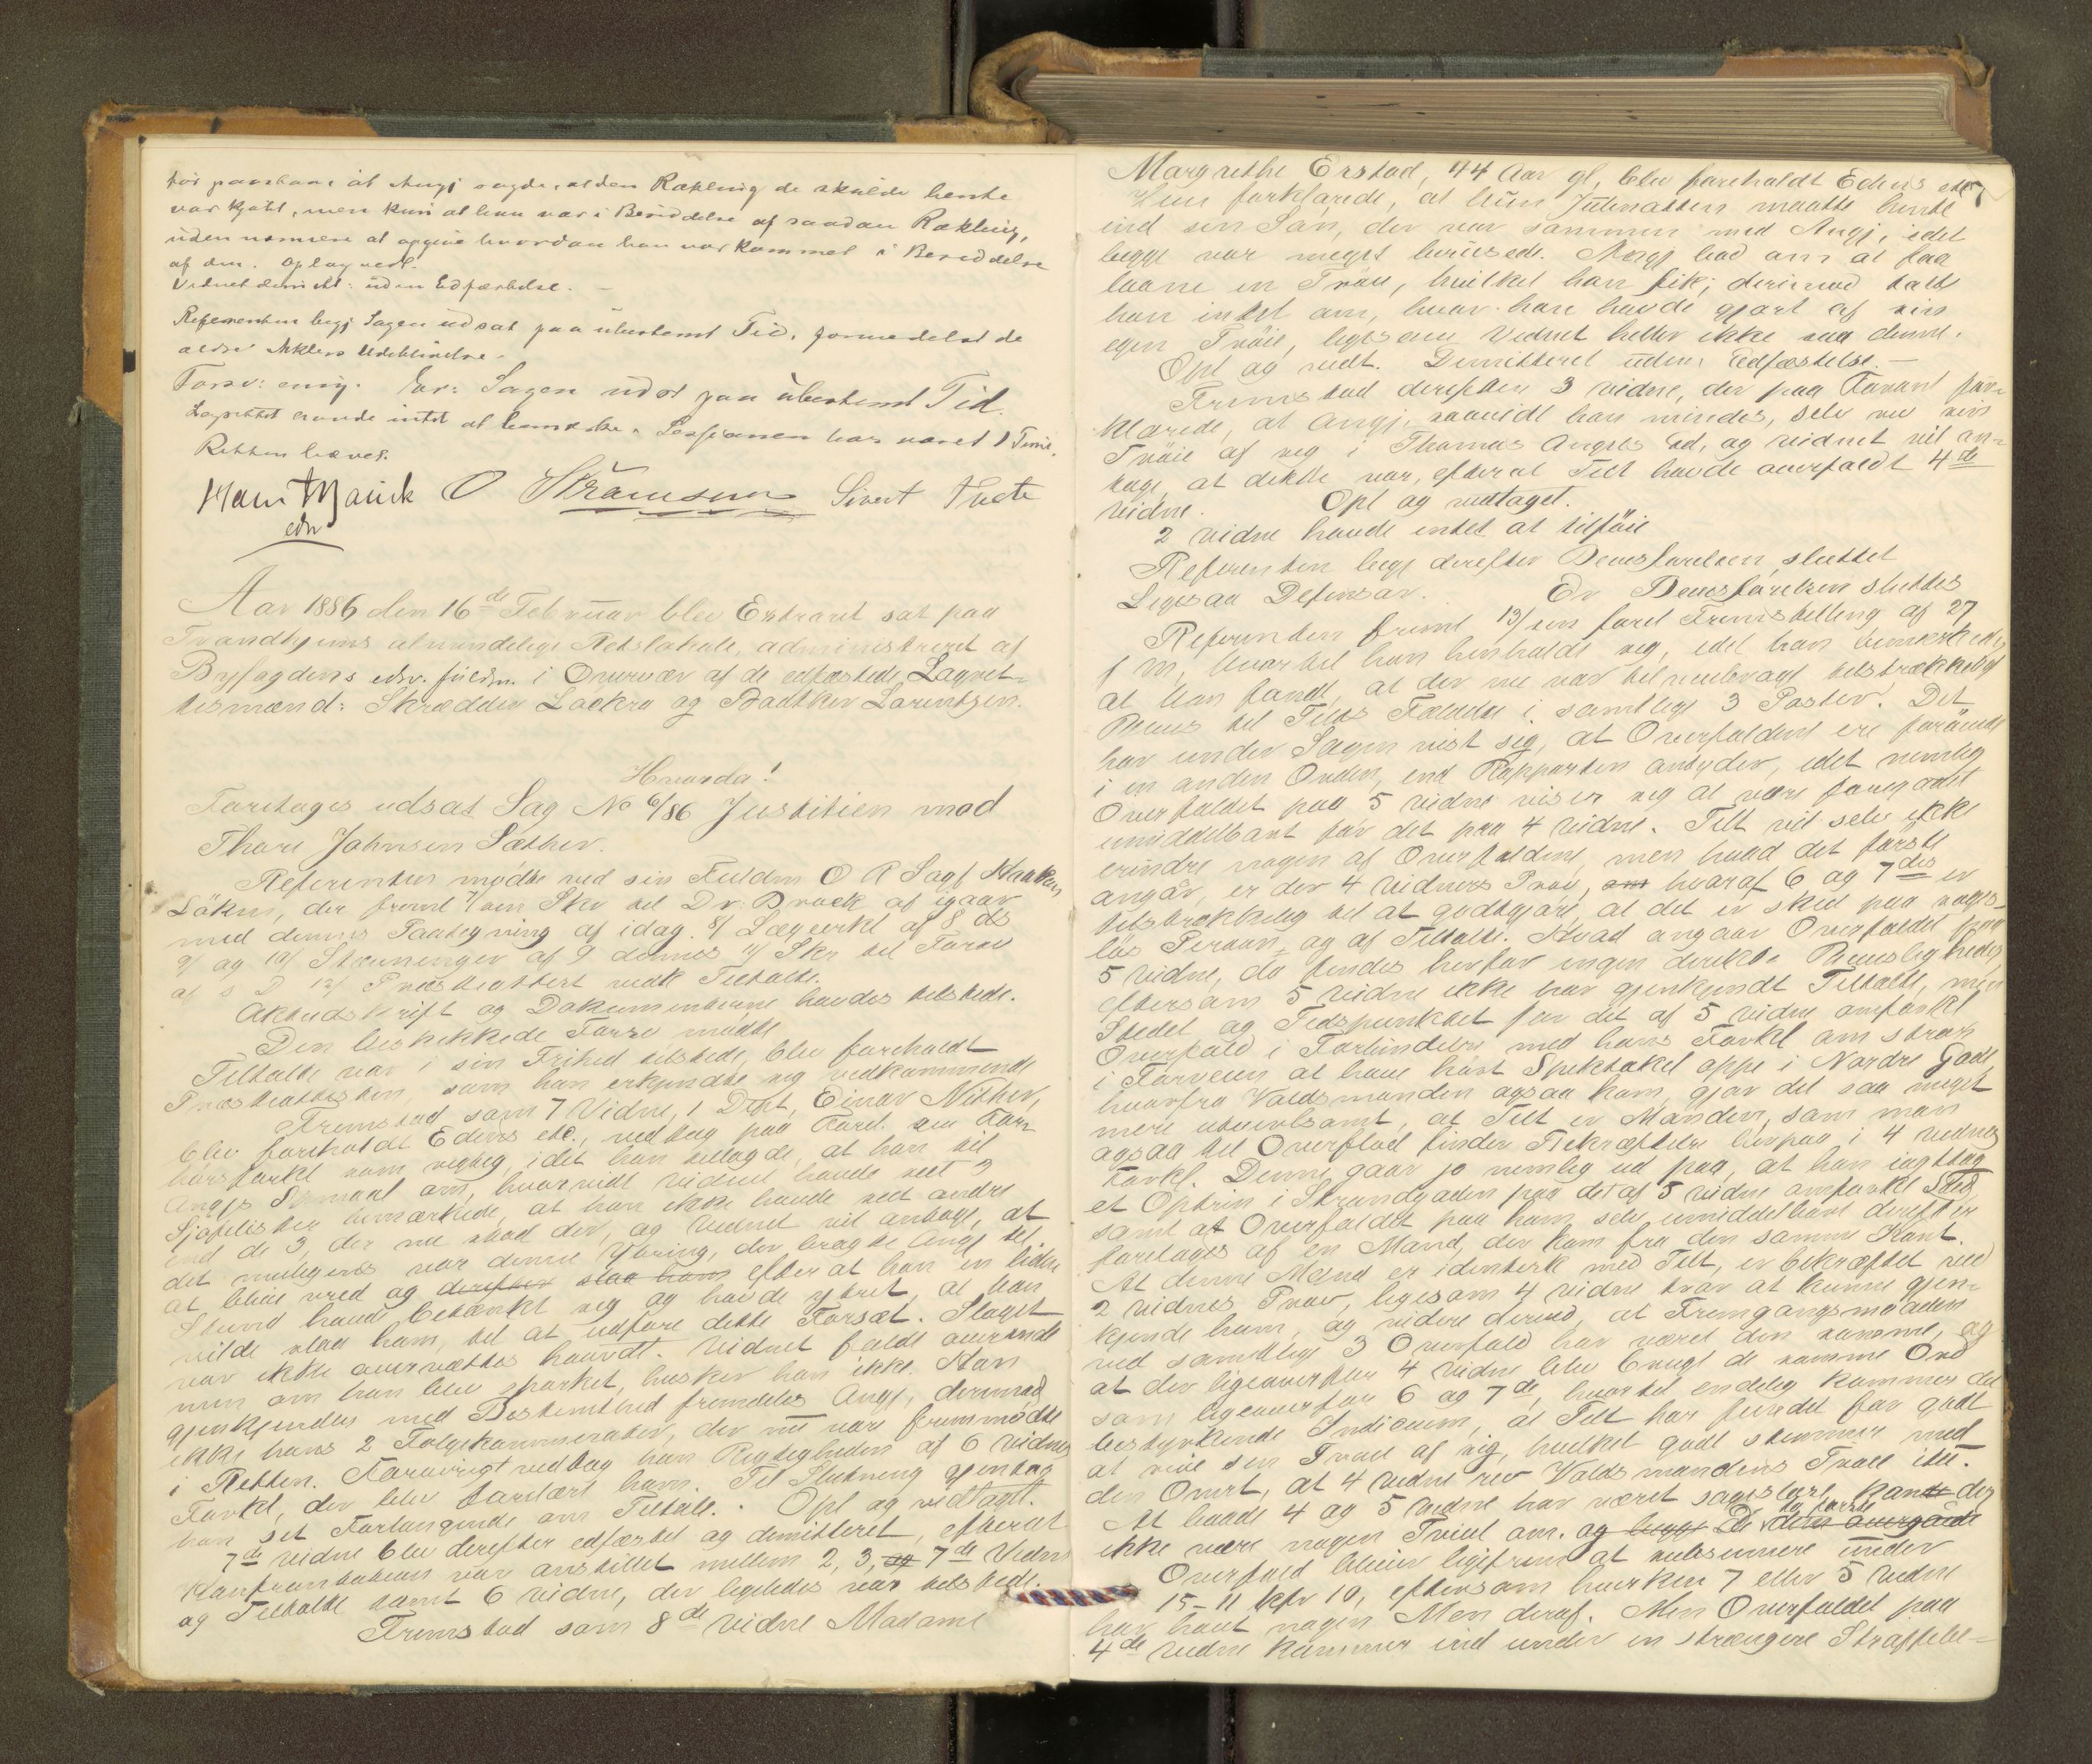 tør paastaar at Angj sagde, at den Rækling de skulde hente
var kjøbt, men kun at han var i Besiddelse af saadan Rækling,
uden nærmere at opgive hvordan han var kommet i Besiddelse
af den. Opl og vedt.
Vidnet dimitt: uden Edfæstelse. –
Referenten begj Sagen udsat paa ubestemt Tid, formedelst de
Aktens Udeblivelse.
Forsv: enig. Er: Sagen uds paa ubestemt Tid.
Lagrettet havde intet at bemærke. Sessionen har varet 1 Time.
Retten hævet.
O Strømsem Sivert
edsv
Aar 1886 den 16de Februar blev Extraret sat paa
Trondhjems almindelige Retslokale, administreret af
Byfogdens edsv. fuldm. i Overvær af de edfæstede Lagret-
tesmænd: Skrædder Lockra og Baadtker Lorintzen.
Hvorda!
Foretages udsat Sag No 6/86 Justitien mod
Thore Johnsen Sæther.
Referenten mødte ved sin Fuldm O A Sagf Haakon
Løken, der freml 7/ sin Skr til Dr. Brock af igaar
med dennes Paategning af idag. 8/ Lægeerkl af 8 ds
9/ og 10/ Stævninger af 9 dennes 11/ Skr til Forsv
af s D 12/ Præsteattest vedk Tiltalte.
Aktudskrift og Dokumenterne havdes tilstede.
Den beskikkede Forsv mødte
Tiltalte var i sin Frihed tilstede, blev foreholdt
Præsteattesten, som han erkjendte sig vedkommende
Fremstod som 7 Vidne, 1 Dept, Einar Nither,
blev foreholdt Edens etc., vedtog paa Forel. sin For-
hørsforkl som rigtig, idet han tillagde, at han til
Angjs Spmaal om, hvorvidt Vidnet havde seet 2
Sjøfolister bemærkede, at han ikke havde seet andre
end de 3, der nu stod der, og Vidnet vil antage, at
det muligens var denne Ytring, der bragte Angj til
at blive vred og derefter slaa ham efterat han en liden
Stund havde betænkt sig og havde ytret, at han
vilde slaa ham, til at udføre dette Forsæt. Slaget
var ikke overvættes haardt. Vidnet faldt overende
men om han blev sparket, husker han ikke. Han
gjenkjender med Bestemthed fremdeles Angj, derimod
ikke hans 2 Følgekammerater, der nu var fremmødte
i Retten. Forøvrigt vedtog han Rigtigheden af 6 Vidnes
Forkl, der blev forelæst ham. Til Slutning gjentog
han sit Forlangende om Tiltale. Opl og vedtaget.
7de Vidne blev derefter edfæstet og dimitteret, efterat
Konfrontation var anstillet mellem 2, 3, og 7de Vidne
og Tiltalte samt 6 Vidne, der ligeledes var tilstede.
Fremstod som 8de Vidne Madame
Margrethe Erstad, 44 Aar gl, blev foreholdt Edens etc
Hun forklarede, at hun Julenatten maatte hente
ind sin Søn, der var sammen med Angj, idet
begge var meget berusede. Angj bad om at faa
laane en Trøie, hvilket han fik; derimod talte
han intet om, hvor han havde gjort af sin
egen Trøie, ligesom Vidnet heller ikke saa denne.
Opl og vedt. Dimitteret uden Edfæstelse. –
Fremstod derefter 3 Vidne, der paa Foranl for-
klarede, at Angj, saavidt han mindes, selv rev sin
Trøie af sig i Thomas Angels Gd, og Vidnet vil an-
tage, at dette var, efterat Tilt havde overfaldt 4de
Vidne. Opl og vedtaget.
2 Vidne havde intet at tilføie
Referenten begj derefter Bevisførelsen sluttet
Ligesaa Defensor. Er Bevisførelsen sluttes
Referenten freml 13/ sin forel Fremstilling af 27
f m, hvortil han henholdt sig, idet han bemærkede,
at han fandt, at der nu var tilveiebragt tilstrækkeligt
Bevis til Tilts Fældelse i samtlige 3 Poster. Det
har under Sagen vist sig, at Overfaldene ere forøvede
i en anden Orden, end Rapporten antyder, idet nemlig
Overfaldet paa 5 Vidne viser sig at være foregaaet
umiddelbart før det paa 4 Vidne. Tilt vil selv ikke
erindre nogen af Overfaldene, men hvad det første
angår, er der 4 Vidners Prov, om hvoraf 6 og 7des er
tilstrækkelig til at godtgjøre, at det er sked paa sages-
løs Person, og af Tiltalte. Hvad angaar Overfaldet paa
5 Vidne, da findes herfor ingen direkte Bevisligheder,
eftersom 5 Vidne ikke har gjenkjendt Tiltalte, men
Stedet og Tidspunktet for det af 5 Vidne omforkl
Overfald i Forbindelse med hans Forkl om strax
i Forveien at have hørt Spektakel oppe i Nordre Gade,
hvorfra Voldsmanden ogsaa kom, gjør det saa meget
mere utvivlsomt, at Tilt er Manden, som man
ogsaa til Overflod finder Bekræftelse herpaa i 4 Vidnes
Forkl. Denne gaar jo nemlig ud paa, at han iagttog
et Optrin i Strandgaden paa det af 5 Vidne omforkl Sted,
samt at Overfaldet paa ham selv umiddelbart derefter
foretoges af en Mand, der kom fra den samme Kant.
At denne Mand er identisk med Tilt, er bekræftet ved
2 Vidnes Prov, ligesom 4 Vidne tror at kunne gjen-
kjende ham, og videre derved, at Fremgangsmaaden
ved samtlige 3 Overfald har været den samme, og
at der ligeoverfor 4 Vidne blev brugt de samme Ord
som ligeoverfor 6 og 7de, hvortil endelig kommer det
bestyrkende Indicium, at Tilt har fundet for godt
at rive sin Trøie af sig, hvilket godt stemmer med
den Omst, at 4 Vidne rev Voldsmandens Trøie itu.
At baade 4 og 5 Vidne har været sagesløse, kan der
ikke være nogen Tvivl om. og begge De to første
Overfald bliver ligefrem at subsumere under
15–11 kfr 10, eftersom hverken 7 eller 5 Vidne
har havt nogen Men deraf. Men Overfaldet paa
4de Vidne kommer ind under en strængere Straffebe-